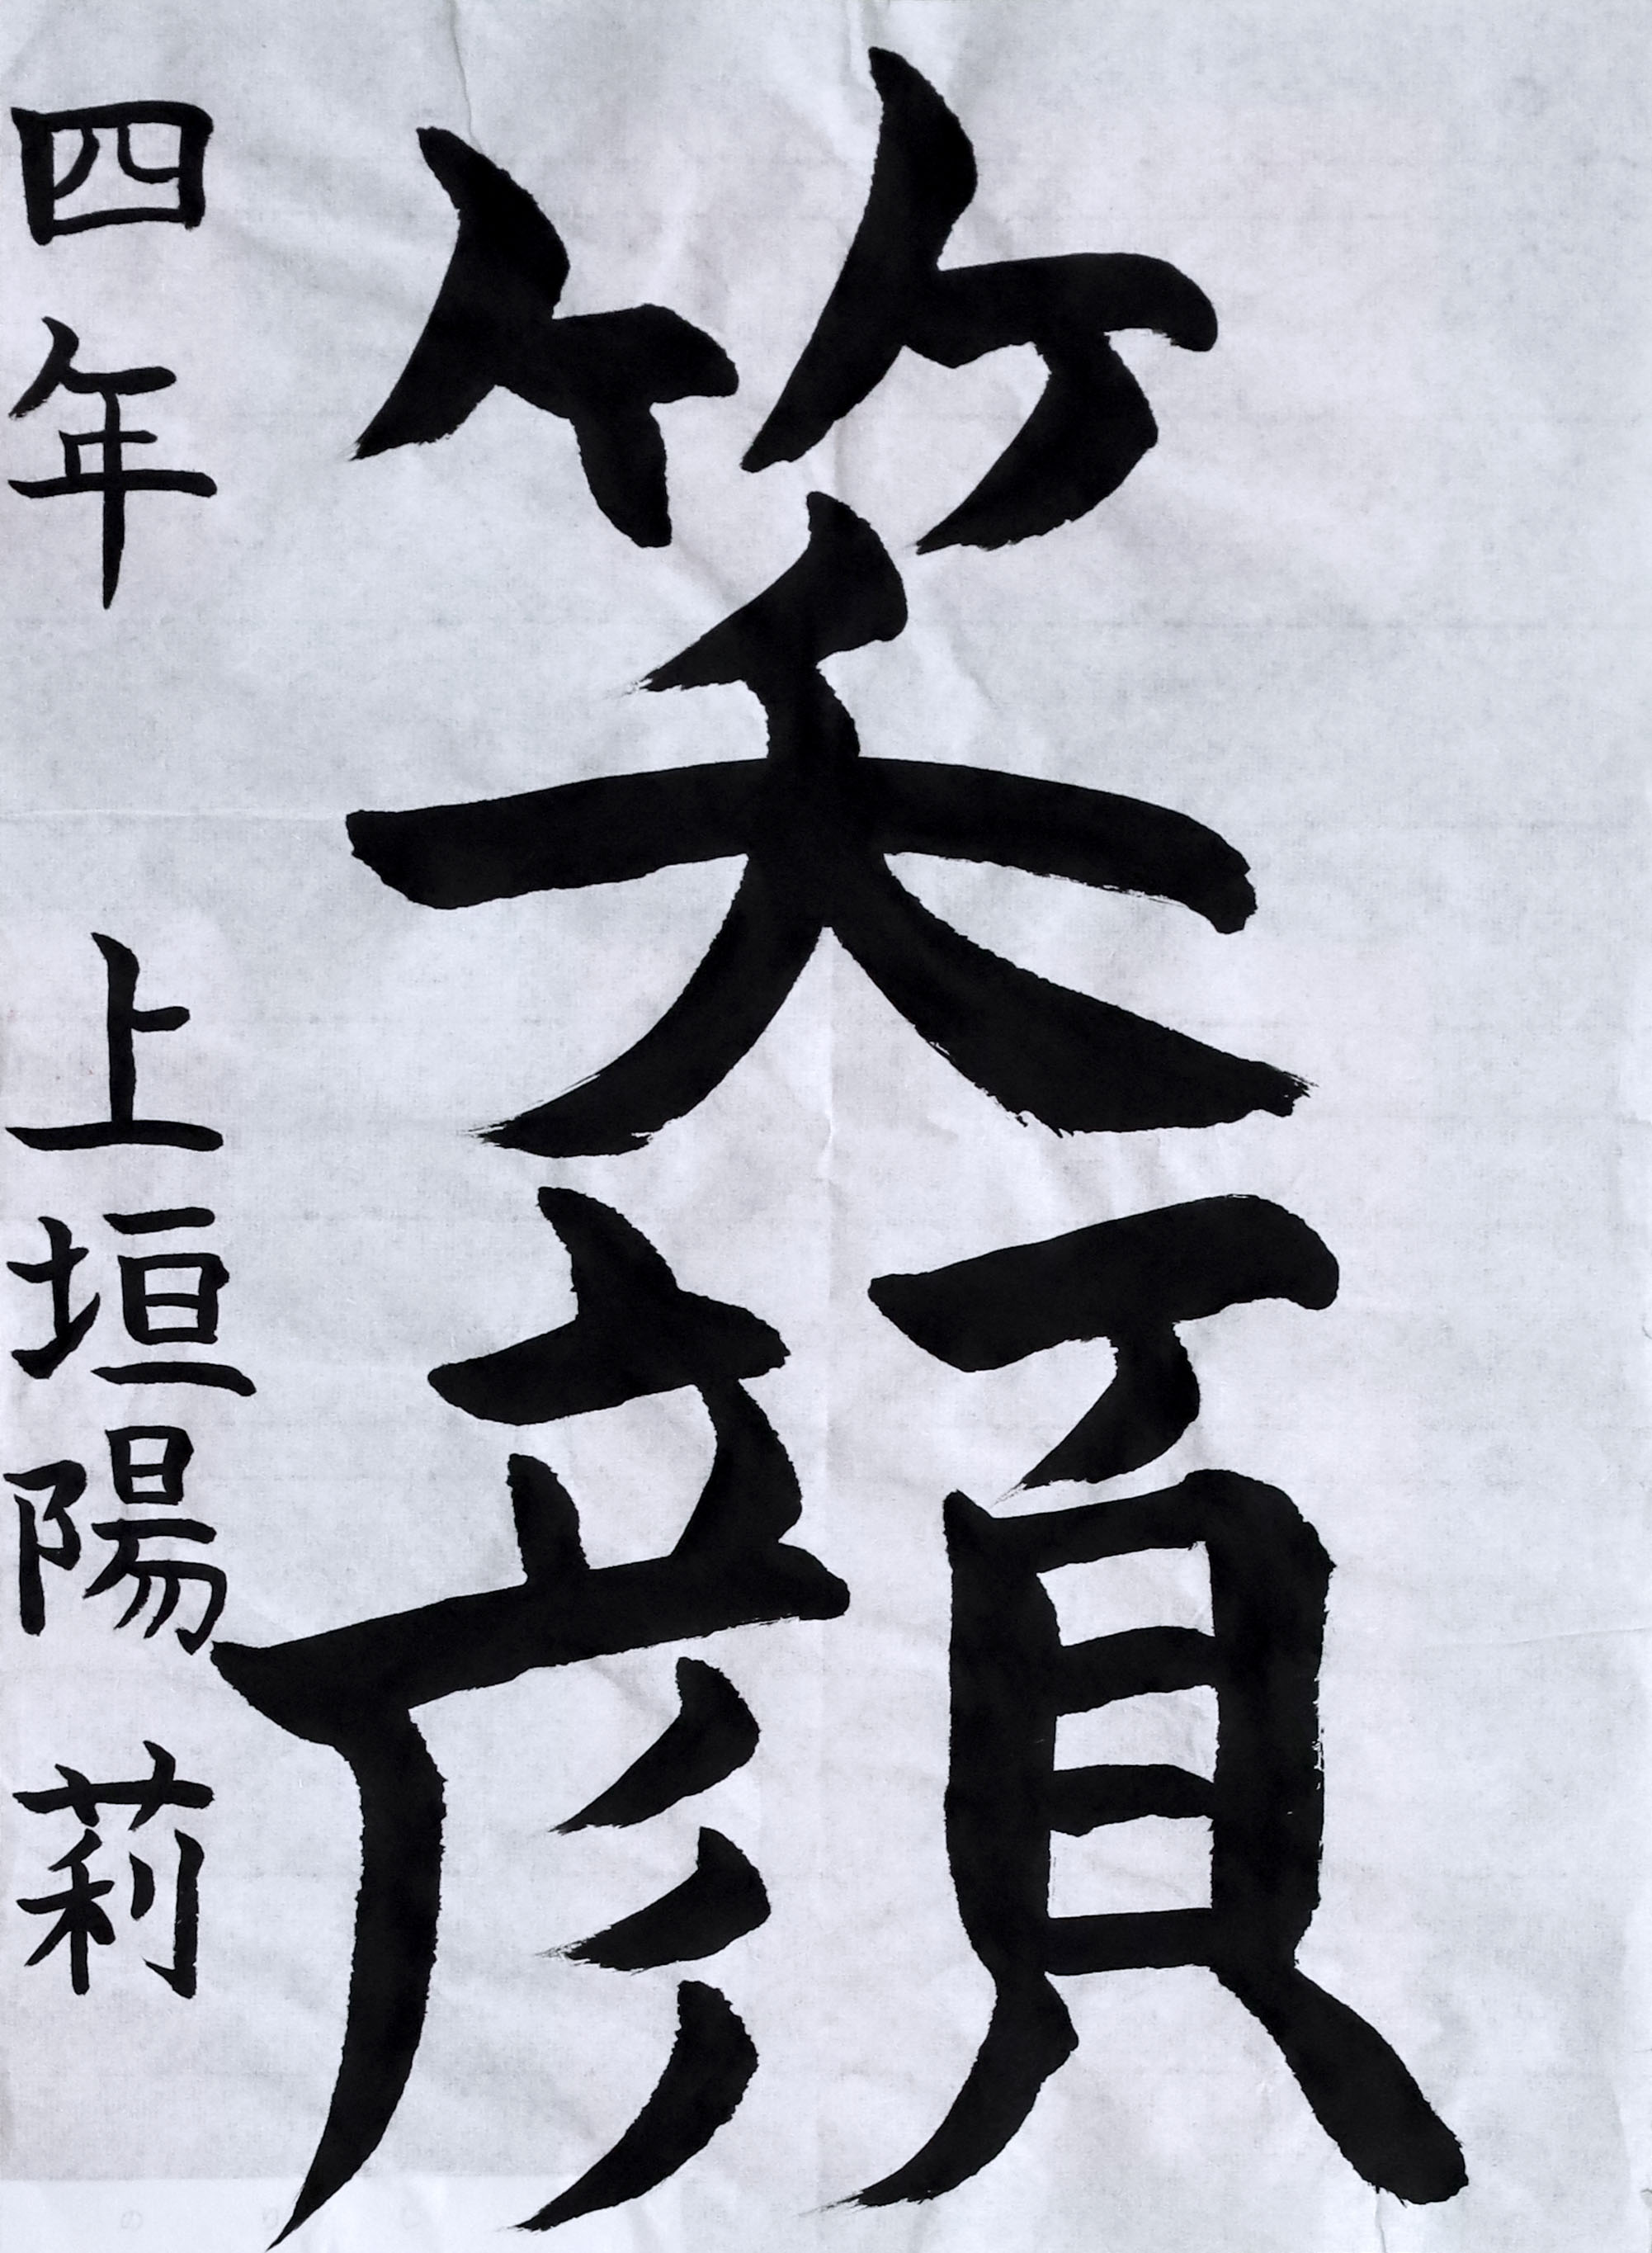 笑顔
四年 上垣陽莉